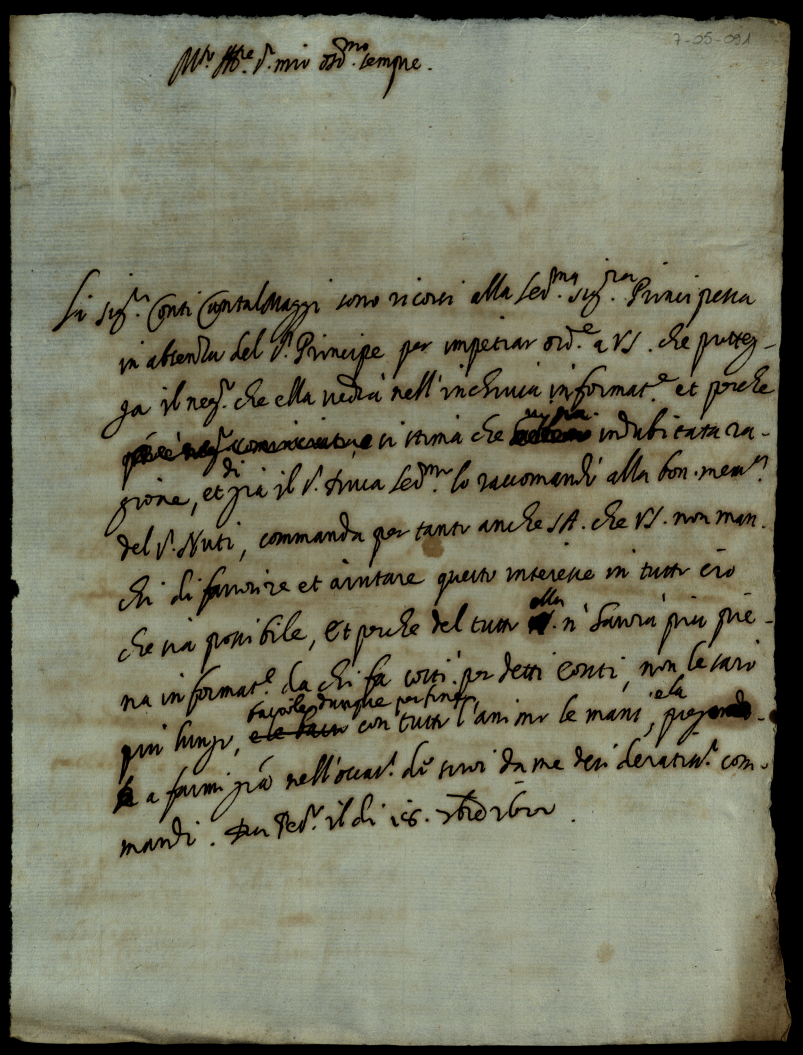 7-05-091
Mto Illre Sr. mio ossmo. sempre.
Li sigri Conti Montal Maggi sono ricorsi alla Sermа sigra Principessa
in absenza del Sr. Principe per impetrar ord.e a VS. che protteg-
ga il neg.o che ella vedrà nell'inchiusa informat.e et perche
si stima che indubitata ra-
gione, et di già il Sr. Duca Sermo lo raccomandò alla bon. mem.a
del Sr. Nuti, commanda per tanto anche SA. che VS. non man-
chi di favorire et aiutare questo interesse in tutto ciò
che sia possibile, Et perche del tutto ella n'havrà più pie-
na informat.e da chi fa costì per detti Conti, non le sarò
più lungo, baciole dunque per fine con tutto l'animo le mani, e la prego
a farmi già nell'occas. de suoi da me desideratiss.i com-
mandi. Di il di 18.